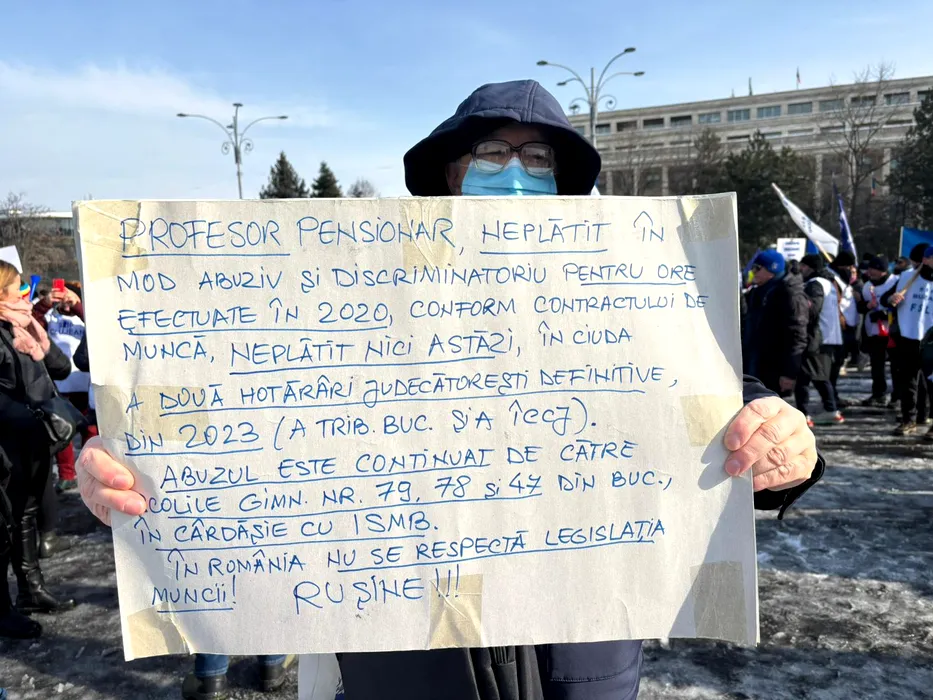 PROFESOR PENSIONAR, NEPLĂTIT ÎN
MOD ABUZIV ȘI DISCRIMINATORIU PENTRU ORE
EFECTUATE ÎN 2020, CONFORM CONTRACTULUI DE
MUNCĂ, NEPLĂTIT NICI ASTĂZI, ÎN CIUDA
A DOUĂ HOTĂRÂRI JUDECĂTOREȘTI DEFINITIVE,
DIN 2023 (A TRIB. BUC. ȘI A ÎCCJ).
ABUZUL ESTE CONTINUAT DE CĂTRE
COLILE GIMN. NR. 79, 78 ȘI 47 DIN BUC.,
ÎN CÂRDĂȘIE CU ISMB.
ÎN ROMÂNIA NU SE RESPECTĂ LEGISLAȚIA
MUNCII! RUȘINE!!!